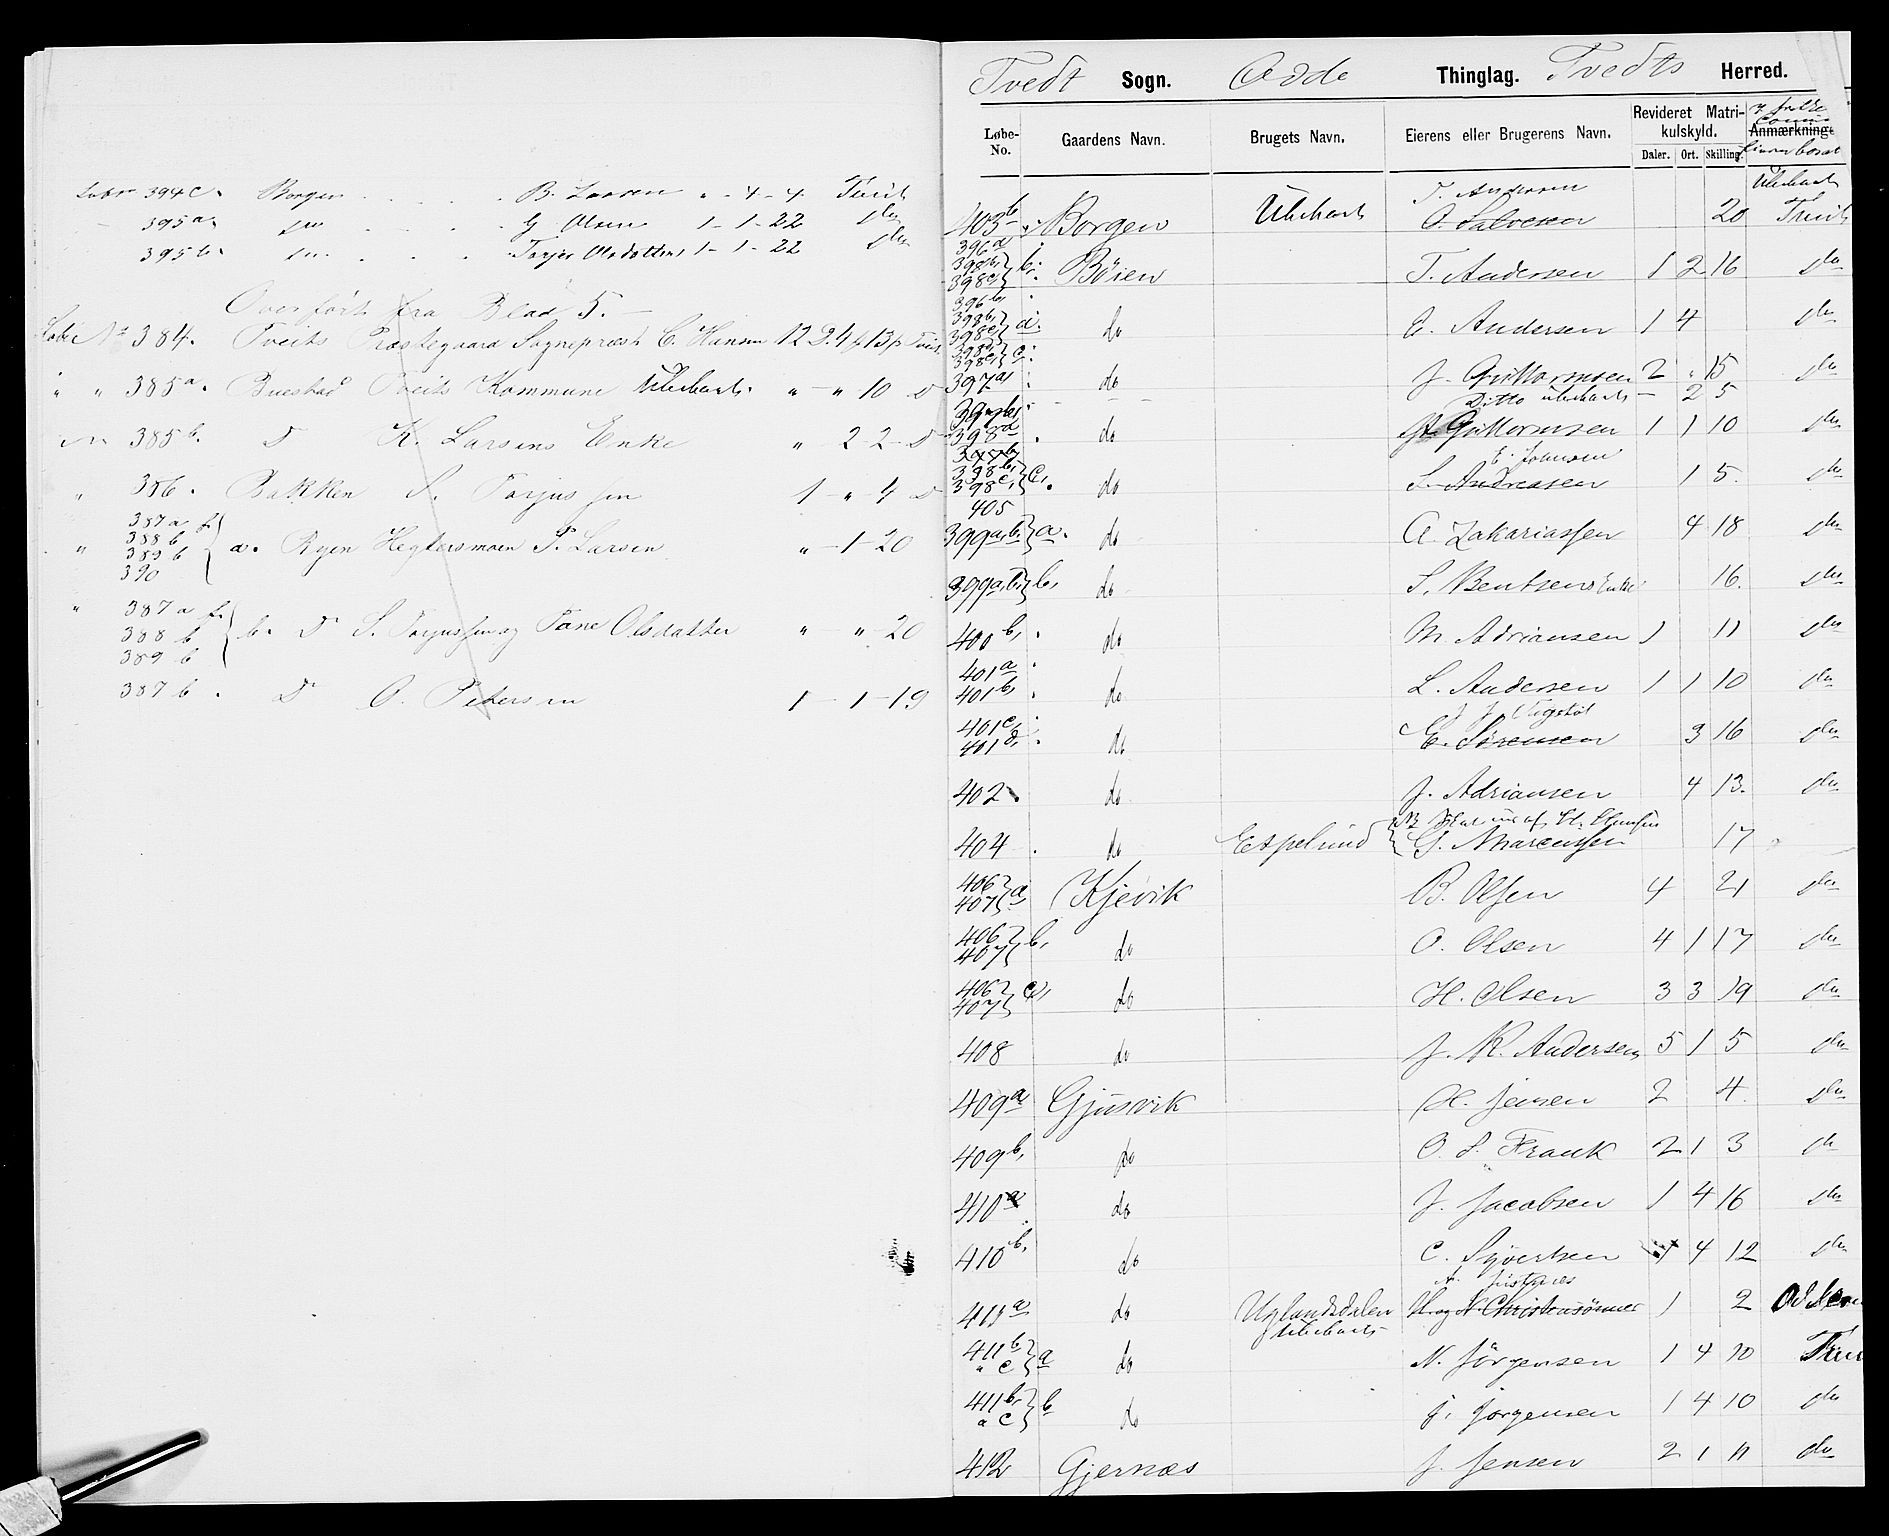 Løbe No 394c. Borgen . . . . B. Larsen " - 4 - 4. Tveit
395a. do . . . . G. Olsen 1 - 1 - 22 do
395b. do . . . . Torjer Olsdatter 1 - 1 - 22 do
Overført fra Blad 5.
Løbe No 384. Tveits Præstegaard Sognepræst C. Hansen 12 D. 4 13 Tveit
" " 385a. Buestad Tveits Kommune Ubeboet. " - " 10 D
385b. D K. Larsens Enke " 2 - 2 - D
" 386. Bakken S. Torjussen 1 - " 4 D
387a f.
388b
" 389b } a. Ryen Hegtersmoen S. Larsen " - 1 - 20
390
" 387a f.
388b } b. D S. Torjussen og Tane Olsdatter " - " - 20
389b
387b. D O. Petersen 1 - 1 - 19
Tvedt Sogn. Odde Thinglag. Tvedts Herred.
Løbe- No. Gaardens Navn. Brugets Navn. Eierens eller Brugerens Navn. Revideret Matri- kulskyld. Anmærkning
Daler. Ort. Skilling.
T. Andersen Ubeboet
403b Borgen Ubeboet O. Salvesen 20 Tveit
396a
398b,
398c, } b. Böien T. Andersen 1 2 16 do
396b,
398b,
398c } a. do E. Andersen 1 4 do
398b,
398c, } c.
397a do J. Guttormsen 2 " 15 do
Ditto ubeboet - 2 5
398d do A. Guttormsen 1 1 10 do
E. Johnsen
398b,
398c, } c, do S. Andreasen 1 5. do
405
399a,b, } a. do A. Zakariassen 4 18 do
399a,b, } b, do S. Bentsens Enke 16. do
400b, do M. Adriansen 1 11 do
401a
401b, do L. Andersen 1 1 10 do
401c,
401d, do E. Sörensen 3 16 do
402. do J. Adriansen 4 13. do
404 do Espelund G. Marcussen 17
406
407 } a Kjevik B. Olsen 4 21 do
406
407 } b, do O. Olsen 4 1 17 do
406
407 } c, do H. Olsen 3 3 19 do
408 do J. K. Andersen 5 1 5 do
409a Gjusvik H. Jensen 2 4. do
409b, do O. S. Frank 2 1 3 do
410a do J. Jacobsen 1 4 16 do
410b, do C. Syvertsen 1 4 12 do
A. Justnæs
411a do Uglandsdalen H. og N. Christensönner 1 2 Oddern
Ubeboet
411b,
" c } a do N. Jörgensen 1 4 10 Tveit
411b,
a c } b do J. Jörgensen 1 4 10 do
412 Gjernæs J. Jensen 2 1 11 do